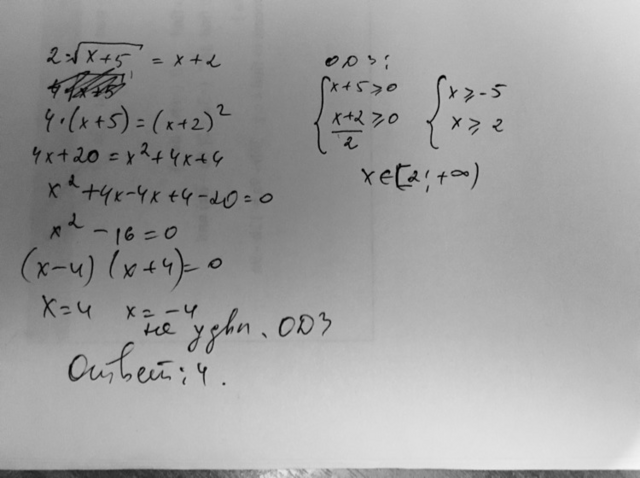 2·√x+5 = x+2
4·(x+5)=(x+2)²
4x+20=x²+4x+4
x²+4x-4x+4-20=0
x²-16=0
(x-4)(x+4)=0
x=4 x=-4
не удвл. ОДЗ
Ответ: 4.
ОДЗ:
{x+5⩾0
x+2/2 ⩾0
{x⩾-5
x⩾2
x∈[2;+∞)